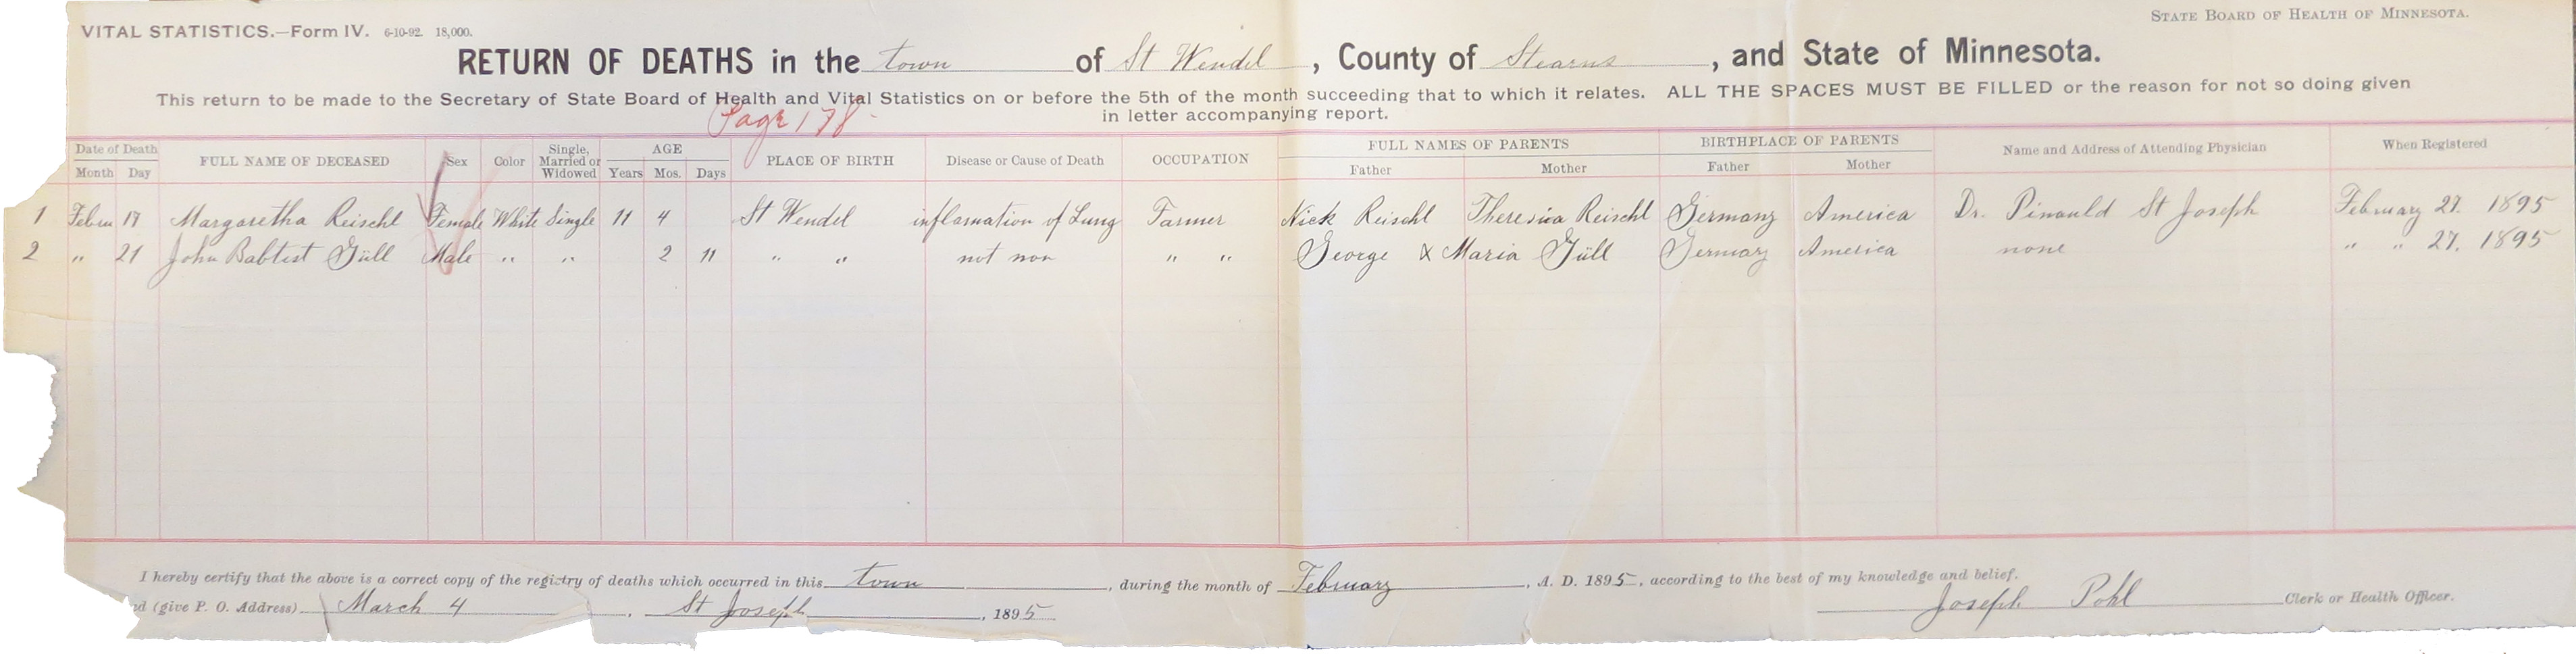 STATE BOARD OF HEALTH OF MINNESOTA.
VITAL STATISTICS.—Form IV. 6-10-92. 18,000.
RETURN OF DEATHS in the town of St Wendel, County of Stearns, and State of Minnesota.
This return to be made to the Secretary of State Board of Health and Vital Statistics on or before the 5th of the month succeeding that to which it relates. ALL THE SPACES MUST BE FILLED or the reason for not so doing given
in letter accompanying report.
Page 178
Date of Death FULL NAME OF DECEASED Sex Color Single, Married or Widowed AGE PLACE OF BIRTH Disease or Cause of Death OCCUPATION FULL NAMES OF PARENTS BIRTHPLACE OF PARENTS Name and Address of Attending Physician When Registered
Month Day Years Mos. Days Father Mother Father Mother
1 Febru 17 Margaretha Reischl Female White Single 11 4 St Wendel inflamation of Lung Farmer Nick Reischl Theresica Reischl Germany America Dr. Pinauld St Joseph February 27. 1895
2 " 21 John Babtist Güll Male " " 2 11 " " not non " " George & Maria Güll Germany America none " " 27. 1895
I hereby certify that the above is a correct copy of the registry of deaths which occurred in this town, during the month of February, A. D. 1895, according to the best of my knowledge and belief.
d (give P. O. Address) March 4, St Joseph, 1895 Joseph Pohl Clerk or Health Officer.